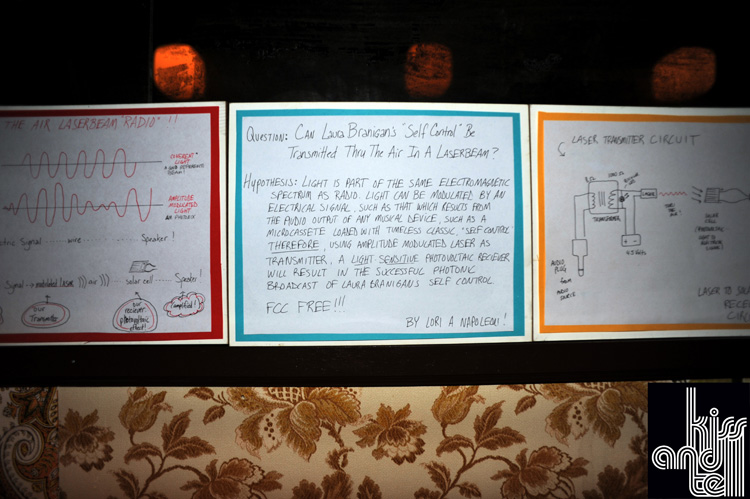 THE AIR LASERBEAM "RADIO" !!
COHERENT
LIGHT
AMPLITUDE
MODULATED
LIGHT
Signal ...... wire ............ Speaker!
Signal → modulated laser ))) air ))) solar cell .... Speaker!
our
transmitter
our
reciever
photovoltaic
effect!
amplified!
QUESTION: CAN LAURA BRANIGAN'S "SELF CONTROL" BE
TRANSMITTED THRU THE AIR IN A LASERBEAM?
HYPOTHESIS: LIGHT IS PART OF THE SAME ELECTROMAGNETIC
SPECTRUM AS RADIO. LIGHT CAN BE MODULATED BY AN
ELECTRICAL SIGNAL, SUCH AS THAT WHICH RESULTS FROM
THE AUDIO OUTPUT OF ANY MUSICAL DEVICE, SUCH AS A
MICROCASSETE LOADED WITH TIMELESS CLASSIC, "SELF CONTROL"
THEREFORE, USING AMPLITUDE MODULATED LASER AS
TRANSMITTER, A LIGHT SENSITIVE PHOTOVOLTAIC RECIEVER
WILL RESULT IN THE SUCCESSFUL PHOTONIC
BROADCAST OF LAURA BRANIGAN'S SELF CONTROL.
FCC FREE!!!
BY LORI A NAPOLEON!
LASER TRANSMITTER CIRCUIT
LASER
TRANSFORMER
SOLAR
CELL
AUDIO
PLUG
from
AUDIO SOURCE
LASER TO
RECE
CIRC
kiss
and
tell